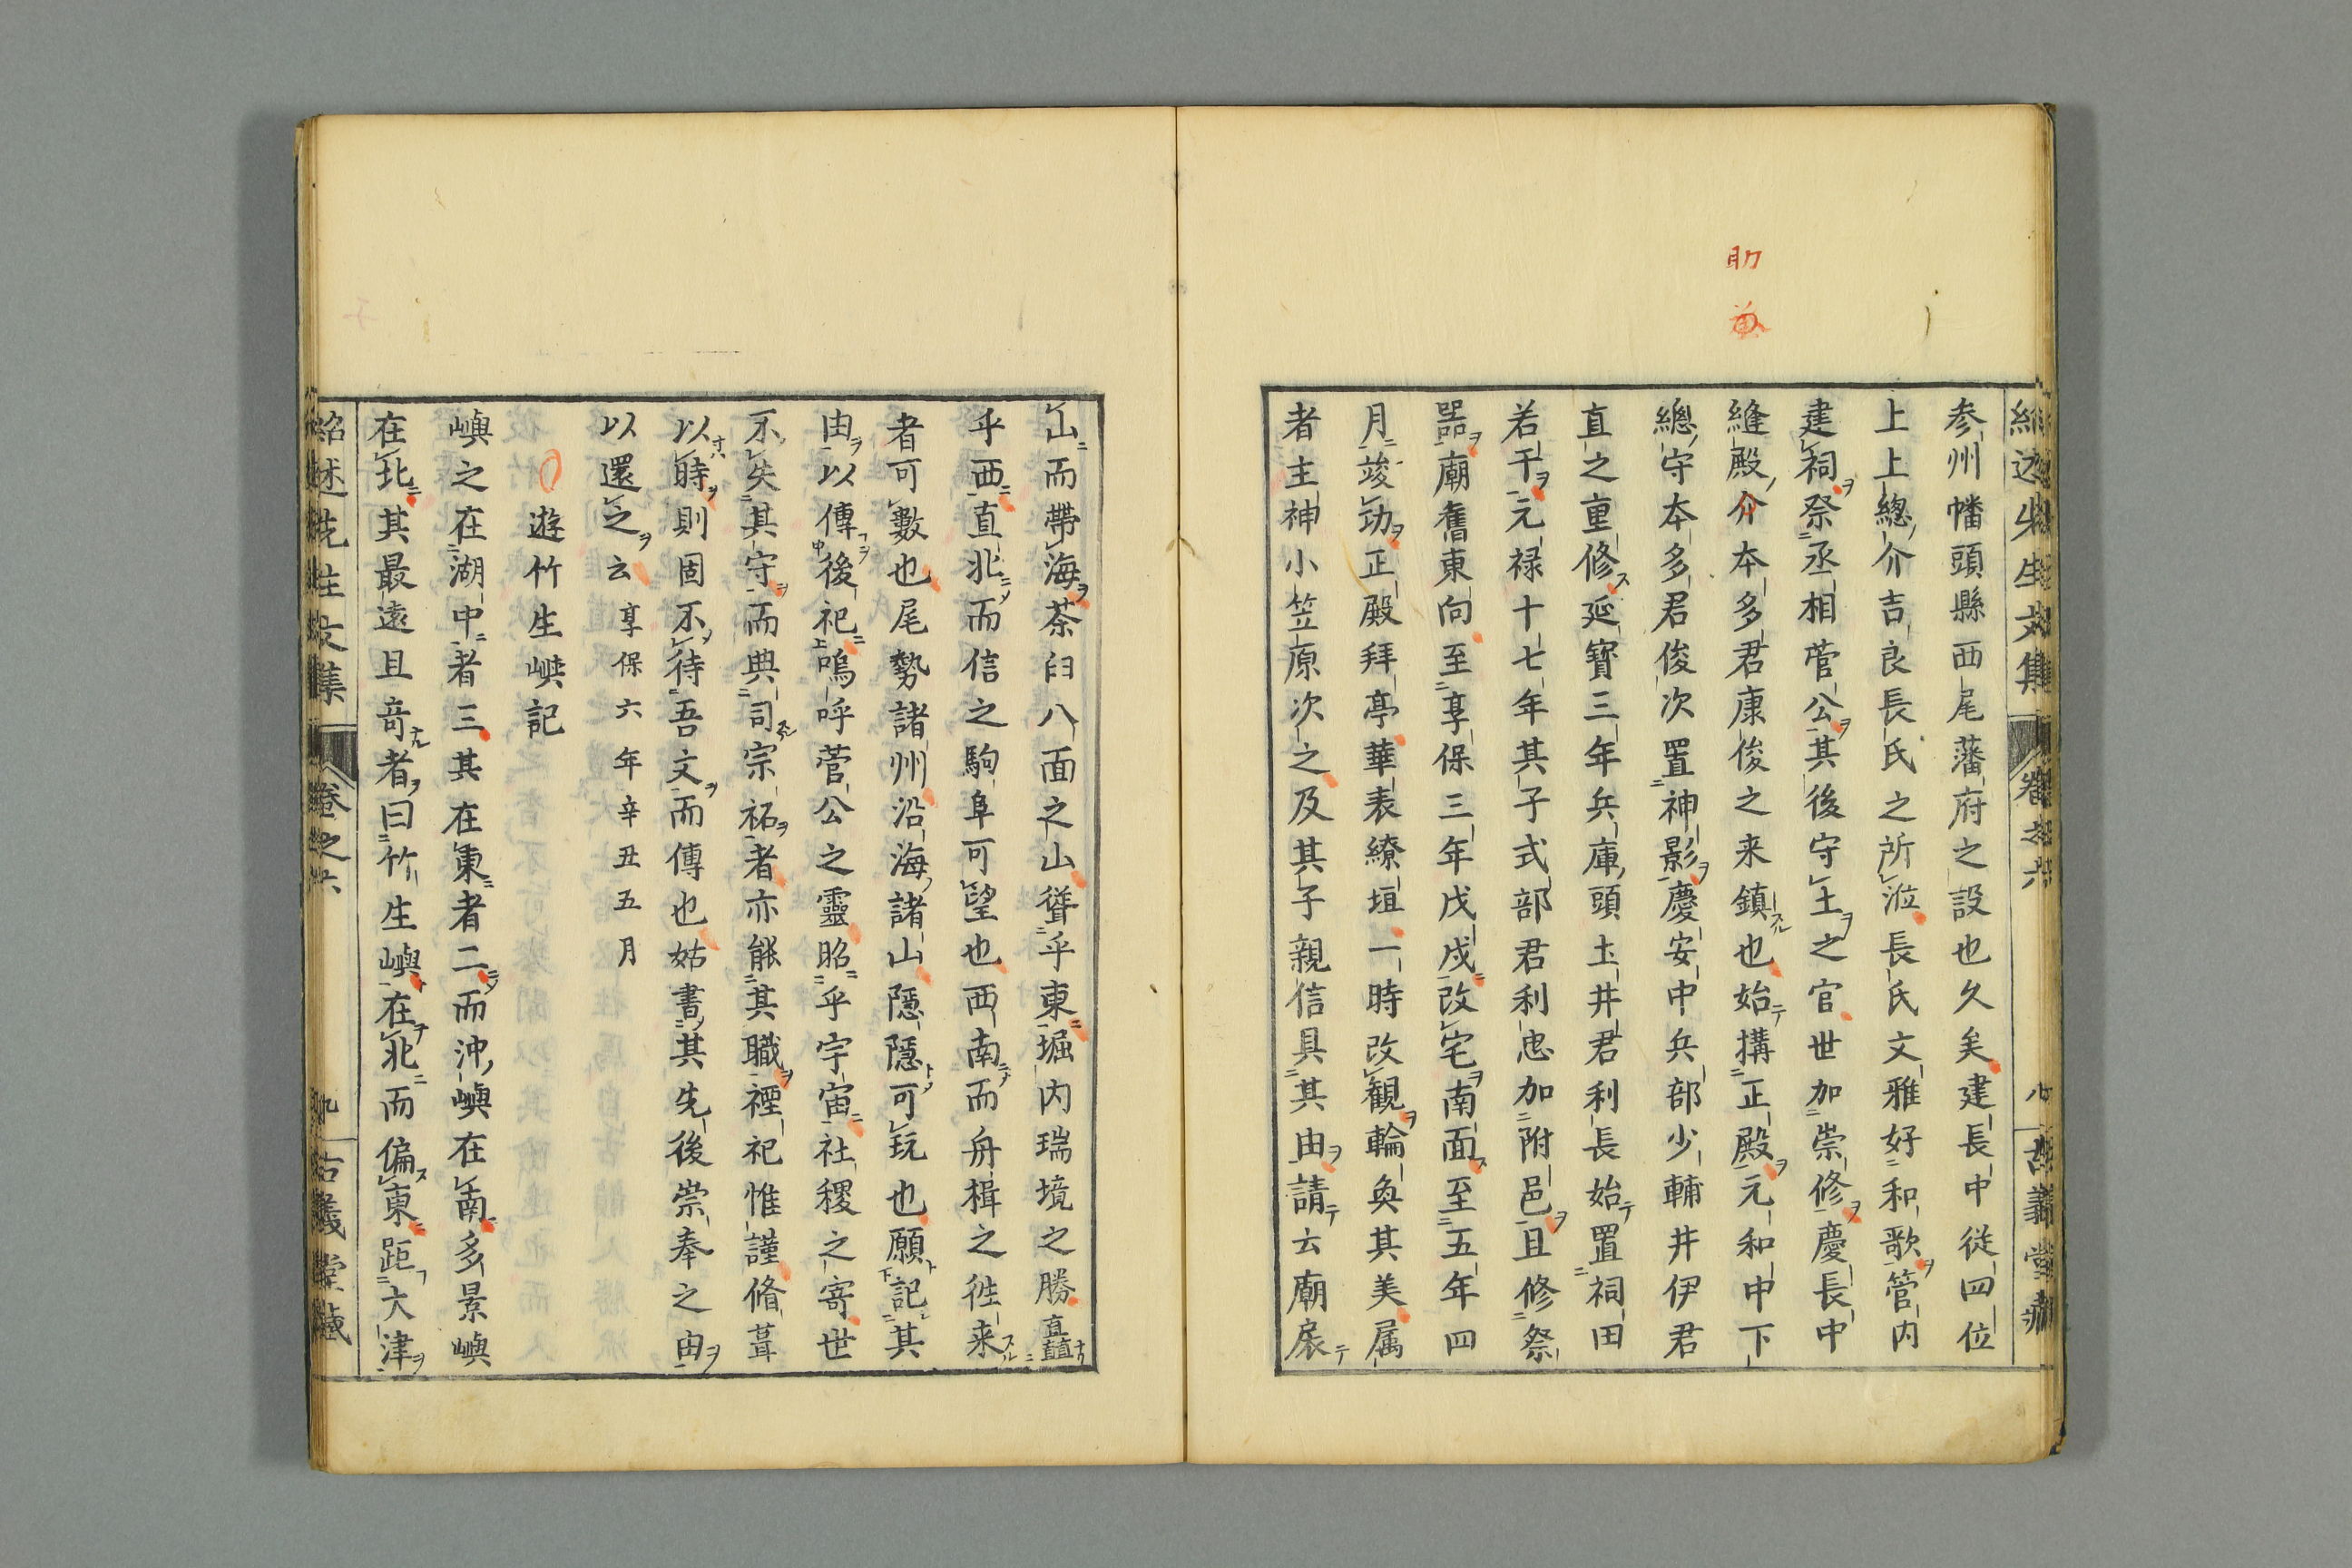 助
紹述先生文集 卷之六 八 古義堂藏
参州幡頭縣西尾藩府之設也久矣建長中従四位
上上總介吉良長氏之所涖長氏文雅好和歌管内
建祠祭丞相菅公其後守土之官世加崇修慶長中
縫殿介本多君康俊之来鎮也始搆正殿元和中下
總守本多君俊次置神影慶安中兵部少輔井伊君
直之重修延寳三年兵庫頭土井君利長始置祠田
若干元禄十七年其子式部君利忠加附邑且修祭
器廟舊東向至享保三年戊戌改宅南面至五年四
月竣功正殿拜亭華表繚垣一時改観輪奐其美属
者主神小笠原次之及其子親信具其由請云廟扆
山而帶海茶臼八面之山聳乎東堀内瑞境之勝直矗
乎西直北而信之駒阜可望也西南而舟楫之徃来
者可數也尾勢諸州沿海諸山隠隠可玩也願記其
由以傳後祀嗚呼菅公之靈昭乎宇宙社稷之寄世
不失其守而典司宗祏者亦能其職禋祀惟謹脩葺
以時則固不待吾文而傳也姑書其先後崇奉之由
以還之云 享保六年辛丑五月
遊竹生㠘記
嶼之在湖中者三其在東者二而沖嶼在南多景嶼
在北其最遠且竒者曰竹生嶼在北而偏東距大津
紹述先生文集 卷之六 九 古義堂藏